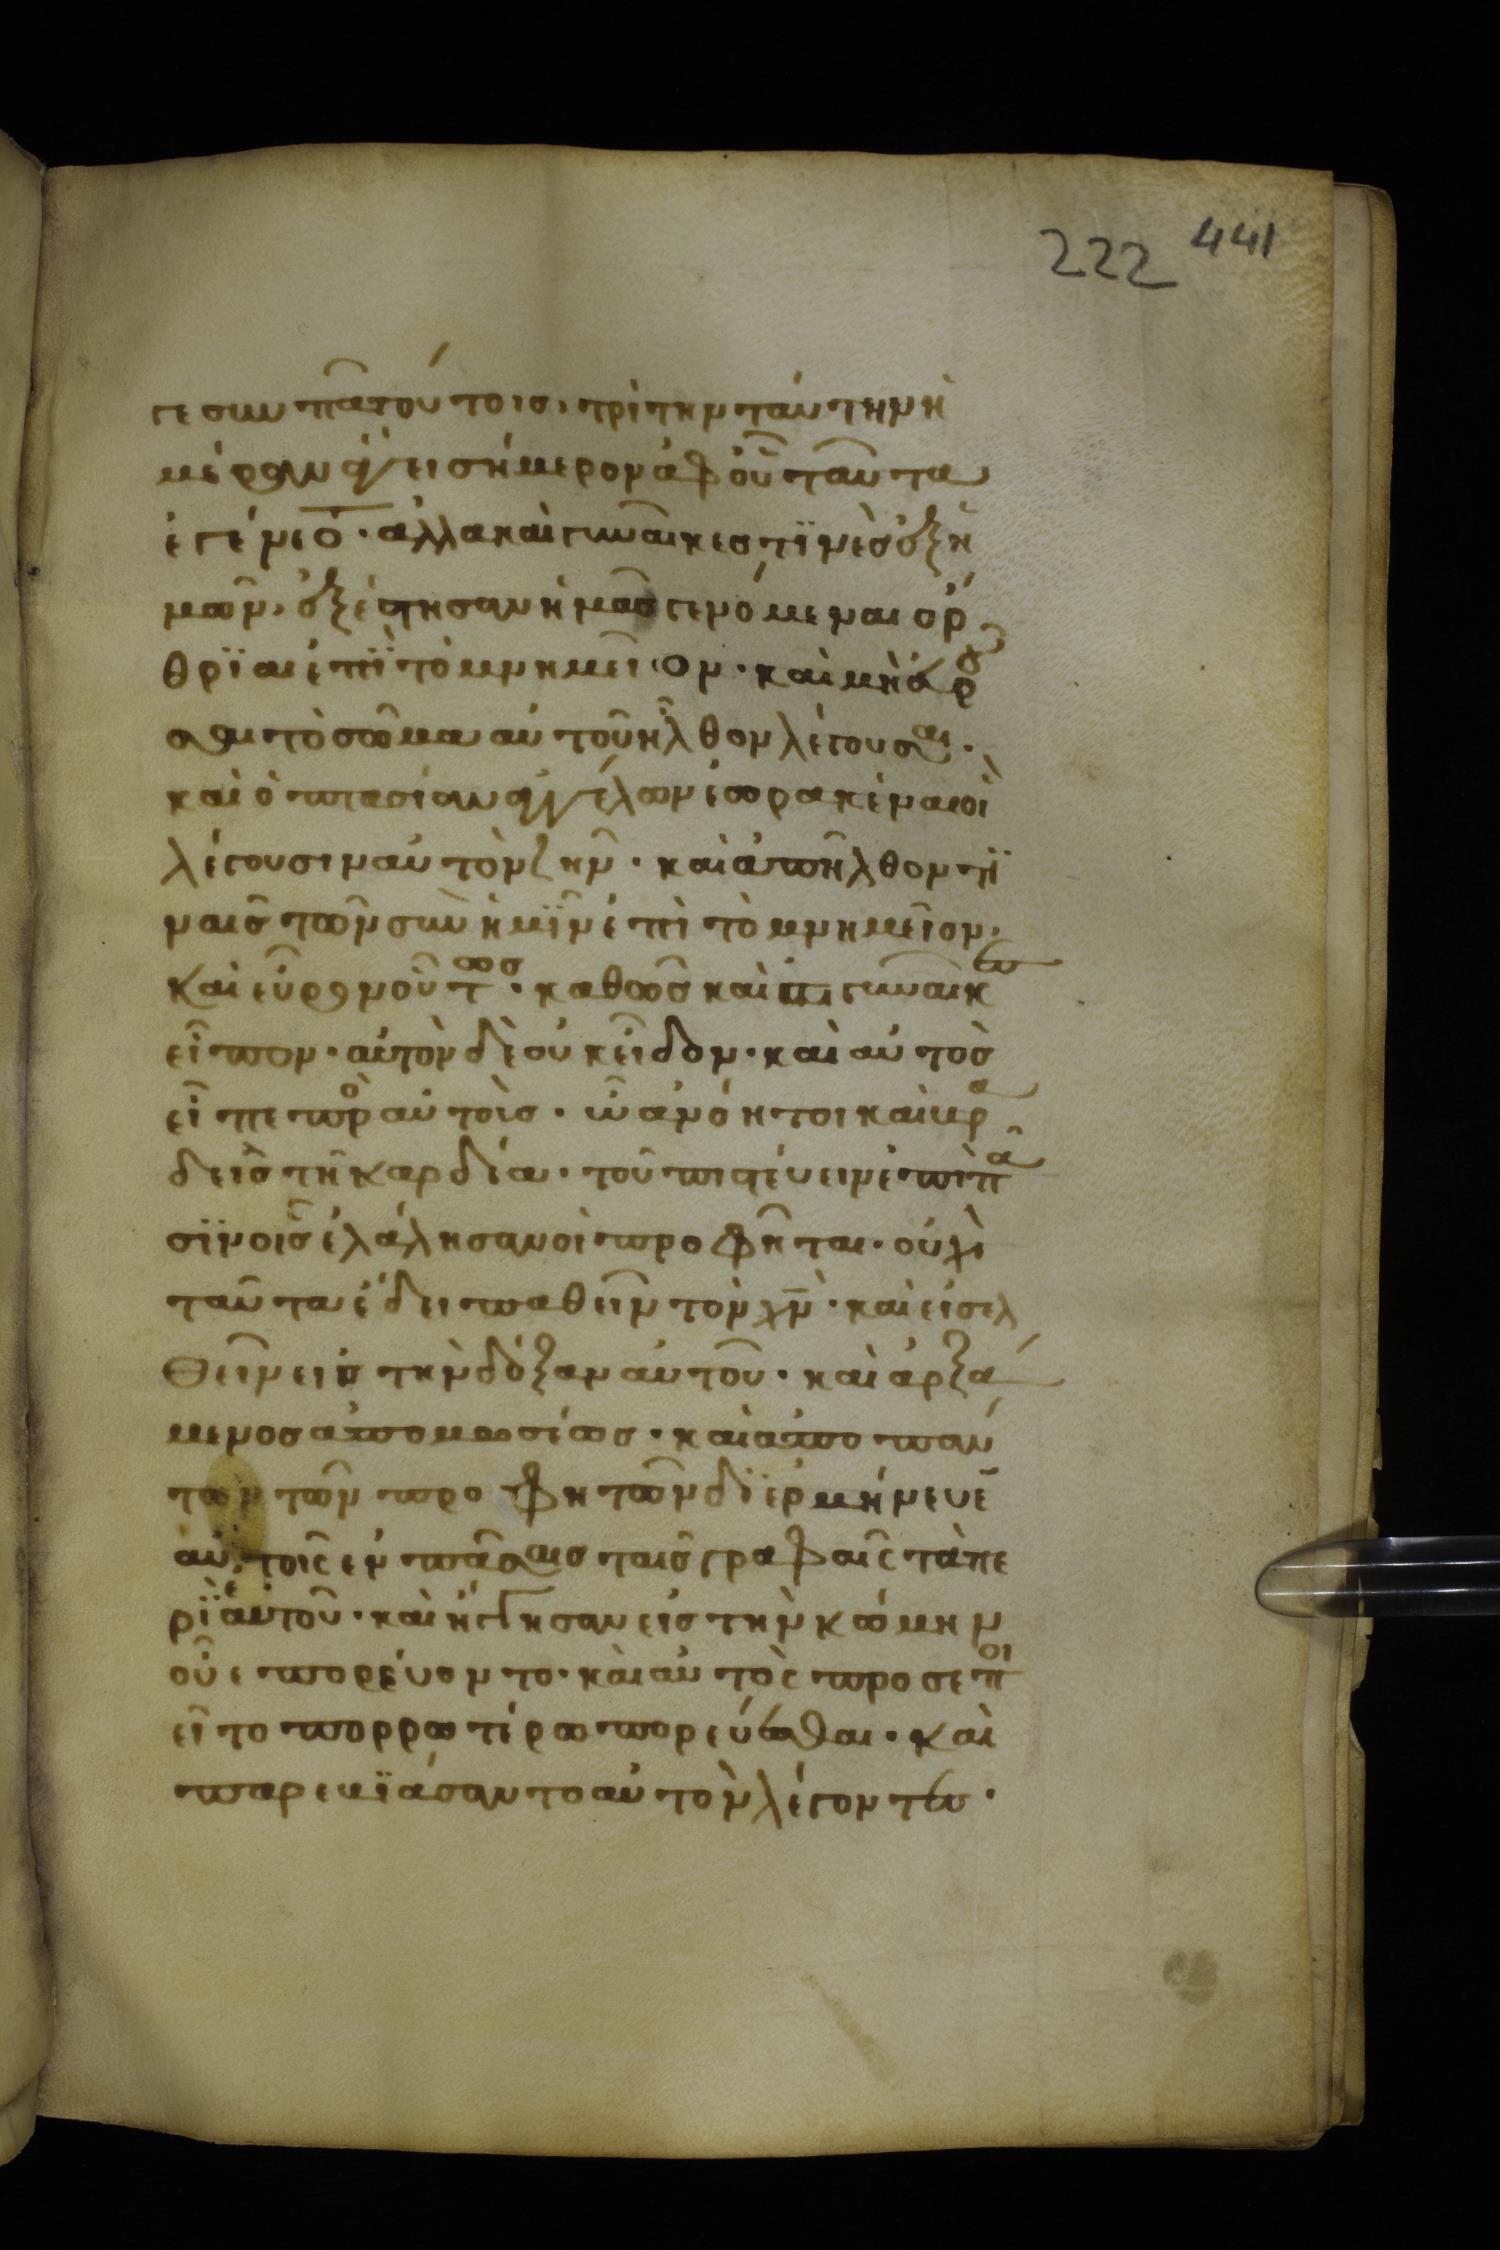 222 441
γε συν πᾶ τούτοις, τρίτην ταύτην ἡ
μέραν ἄγει σήμερον ἀφ οὗ ταῦτα
ἐγένετο· ἀλλα καὶ γυναῖκες τϊνὲς ἐξ ἡ
μῶν, ἐξέστησαν ἡμᾶς γενόμεναι ὀρ
θρϊαι ἐπῒ τὸ μνημεῖον· καὶ μὴ εὑρου
σαι τὸ σῶμα αὐτοῦ ἦλθον λέγουσαι·
καὶ ὀπτασίαν ἀγγέλων ἑωρακέναι οἱ
λέγουσιν αὐτὸν ζῆν· καὶ ἀπῆλθον τϊ
ναις τῶν σὺν ἡμῖν ἐπὶ τὸ μνημεῖον,
καὶ εὗρον οὕτως· καθῶς καὶ αἱ γυναῖκες
εἶπον· αὐτὸν δὲ οὐκ εἶδον· καὶ αὐτὸς
εἶπε πρὸ αὐτοὶς· ὦ ἀνόητοι καὶ βρα
δεῖς τῆ καρδία· τοῦ πιστεύειν ἐπὶ πᾶ
σϊν οἷς ἐλάλησαν οἱ προφῆται· οὐχὶ
ταῦτα ἔδει παθεῖν τὸν χν̄· καὶ εἰσελ
θεῖν εις τὴν δόξαν αὐτοῦ· καὶ ἀρξά
μενος ἀπο μωσέως· καὶ ἀπο πάν
των τῶν προφητῶν δϊερμήνευε̄
αὐτοῖς ἐν πάσαις ταῖς γραφαῖς τὰ πε
ρῒ ἑαυτοῦ· καὶ ἤγγησαν εἰς τὴν κώμην
οὗ ἐπορεύοντο· καὶ αὐτὸς προσεποι
εῖτο πορρωτέρω πορεύεσθαι· καὶ
παρεβϊάσαντο αὐτὸν λέγοντες·